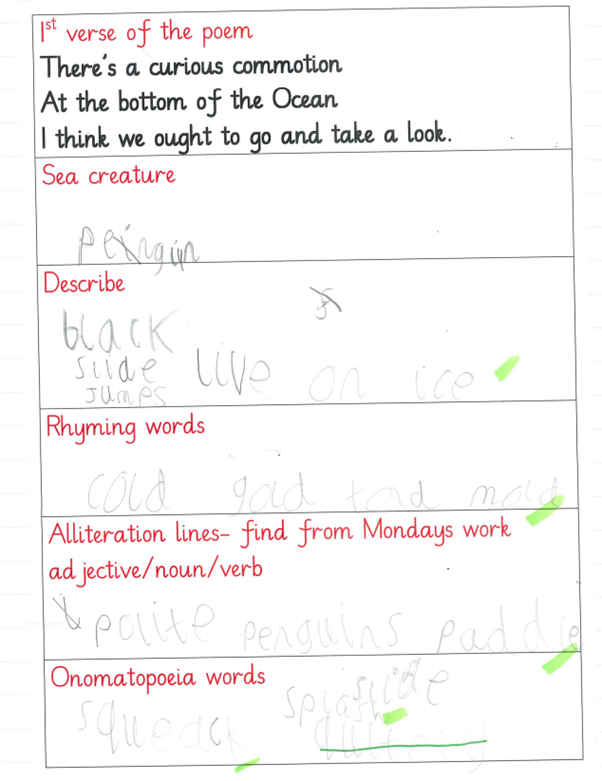 1st verse of the poem
There's a curious commotion
At the bottom of the Ocean
I think we ought to go and take a look.
Sea creature
penguin
Describe
black
slide live on ice
jumps
Rhyming words
cold gold told mold
Alliteration lines- find from Mondays work
adjective/noun/verb
polite penguins paddle
Onomatopoeia words
slide
squeack splash